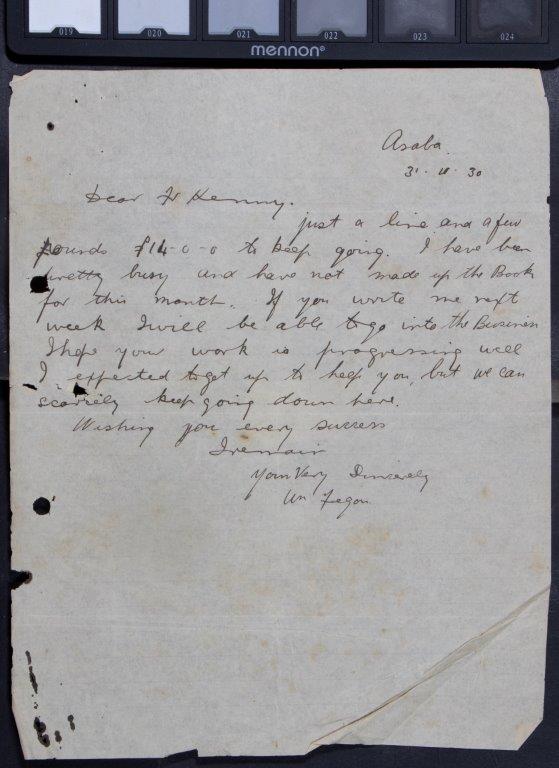 019 020 021 022 023 024
mennon®
Asaba.
31 - 10 - 30
Dear Fr Kenny.
just a line and a few
pounds £14-0-0 to keep going. I have been
pretty busy and have not made up the Book
for this month. If you write me next
week I will be able to go into the Business
I hope your work is progressing well
I expected to get up to help you, but we can
scarcely keep going down here.
Wishing you every success
I remain
Yours Very Sincerely
Wm Fegan